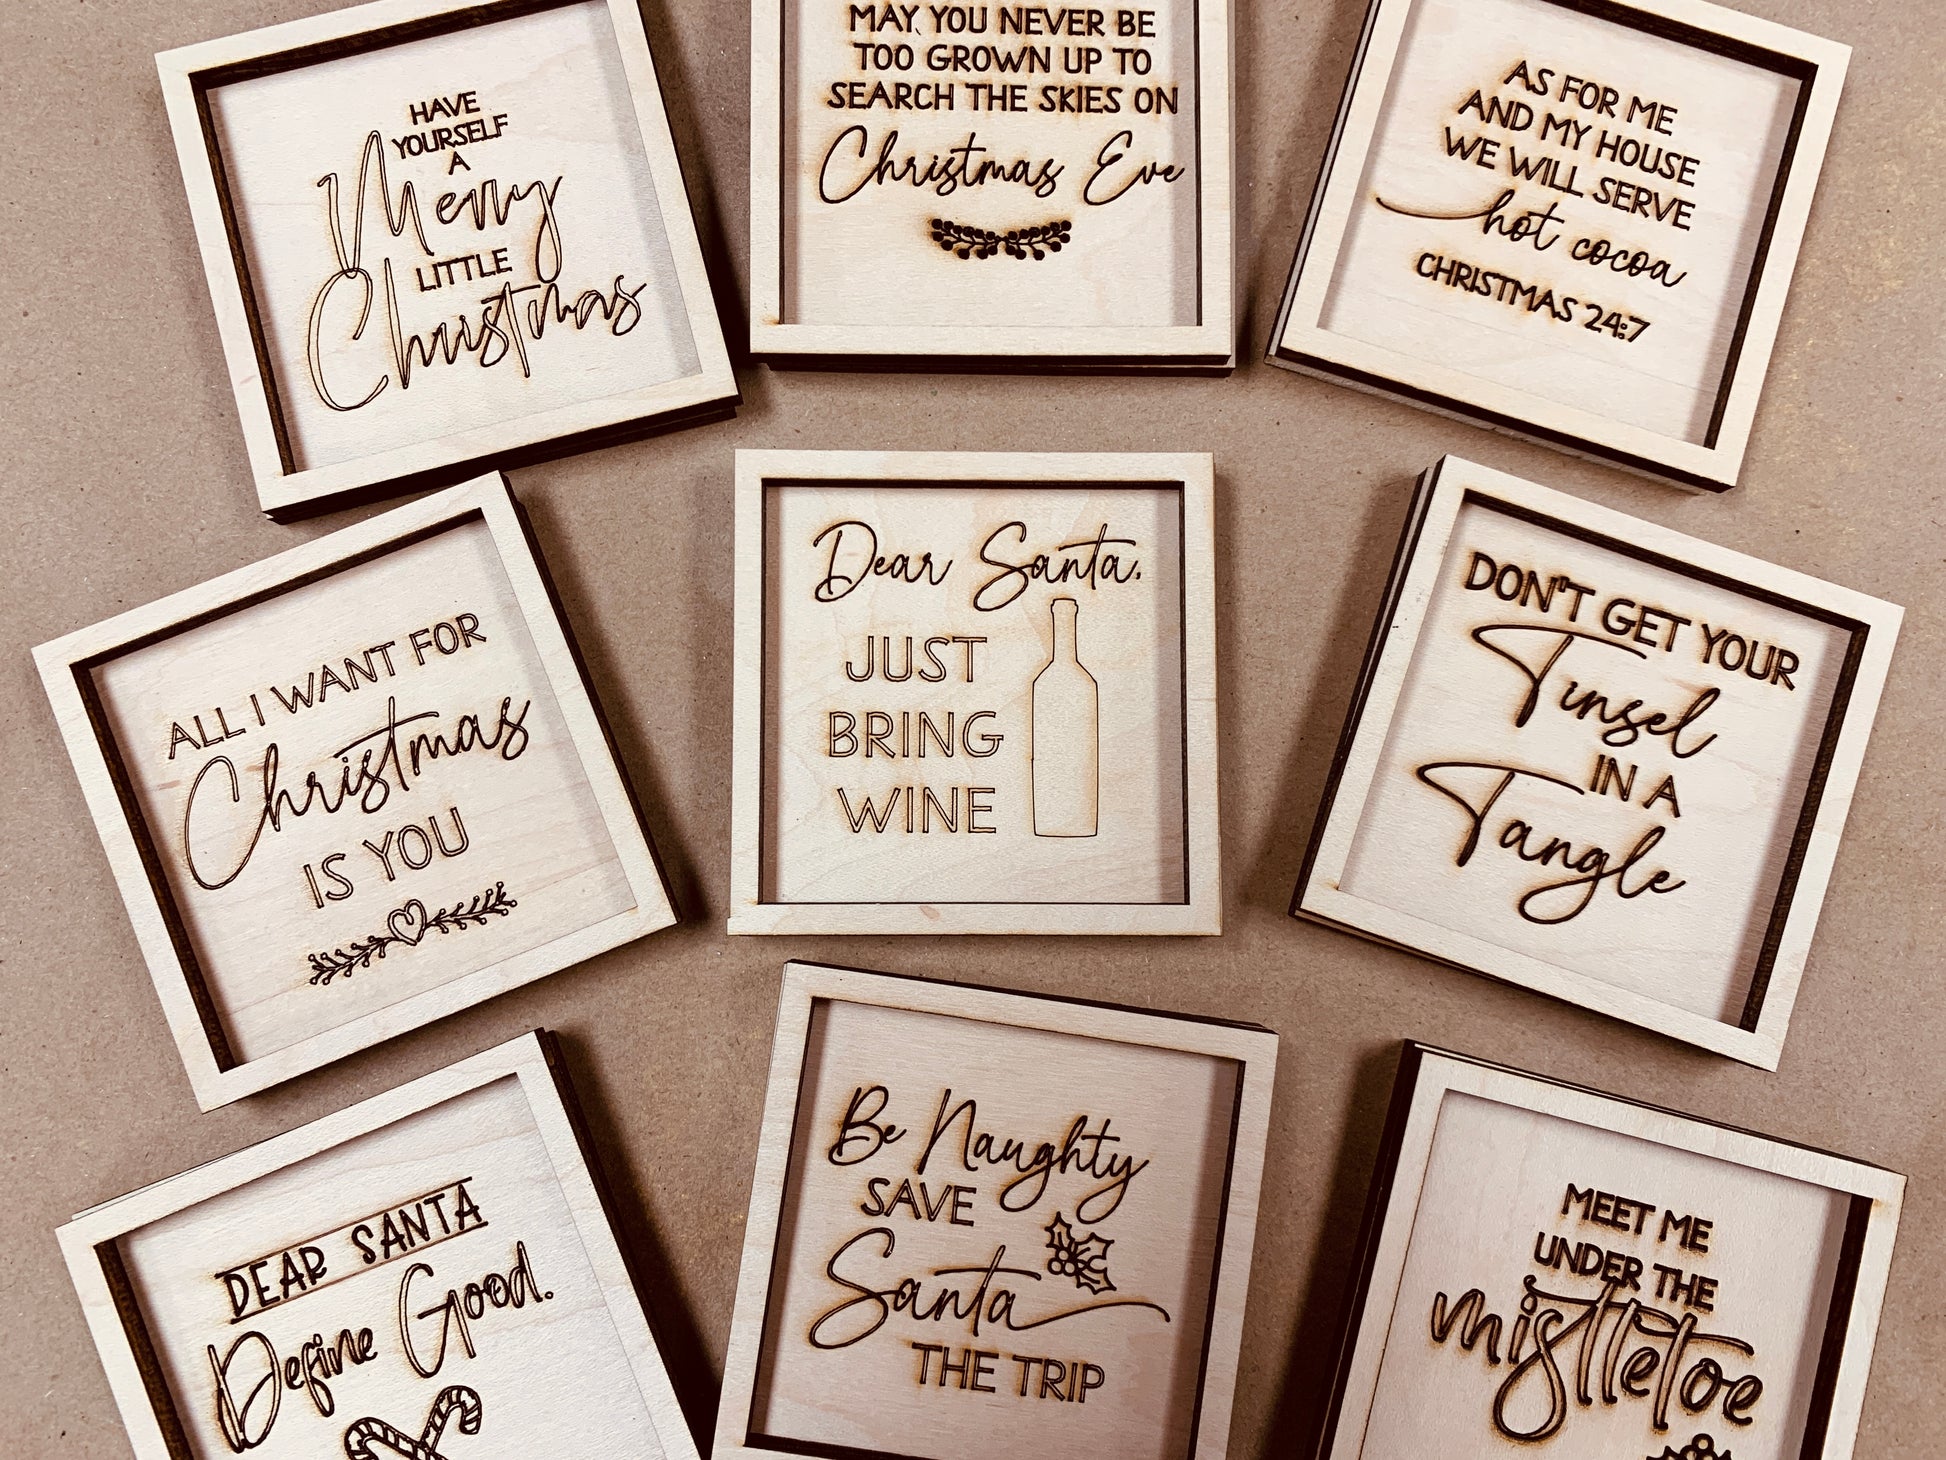 HAVE
YOURSELF
A
Merry
LITTLE
Christmas
MAY YOU NEVER BE
TOO GROWN UP TO
SEARCH THE SKIES ON
Christmas Eve
AS FOR ME
AND MY HOUSE
WE WILL SERVE
hot cocoa
CHRISTMAS 24:7
ALL I WANT FOR
Christmas
IS YOU
Dear Santa,
JUST
BRING
WINE
DON'T GET YOUR
Tinsel
IN A
Tangle
DEAR SANTA
Define Good.
Be Naughty
SAVE
Santa
THE TRIP
MEET ME
UNDER THE
mistletoe